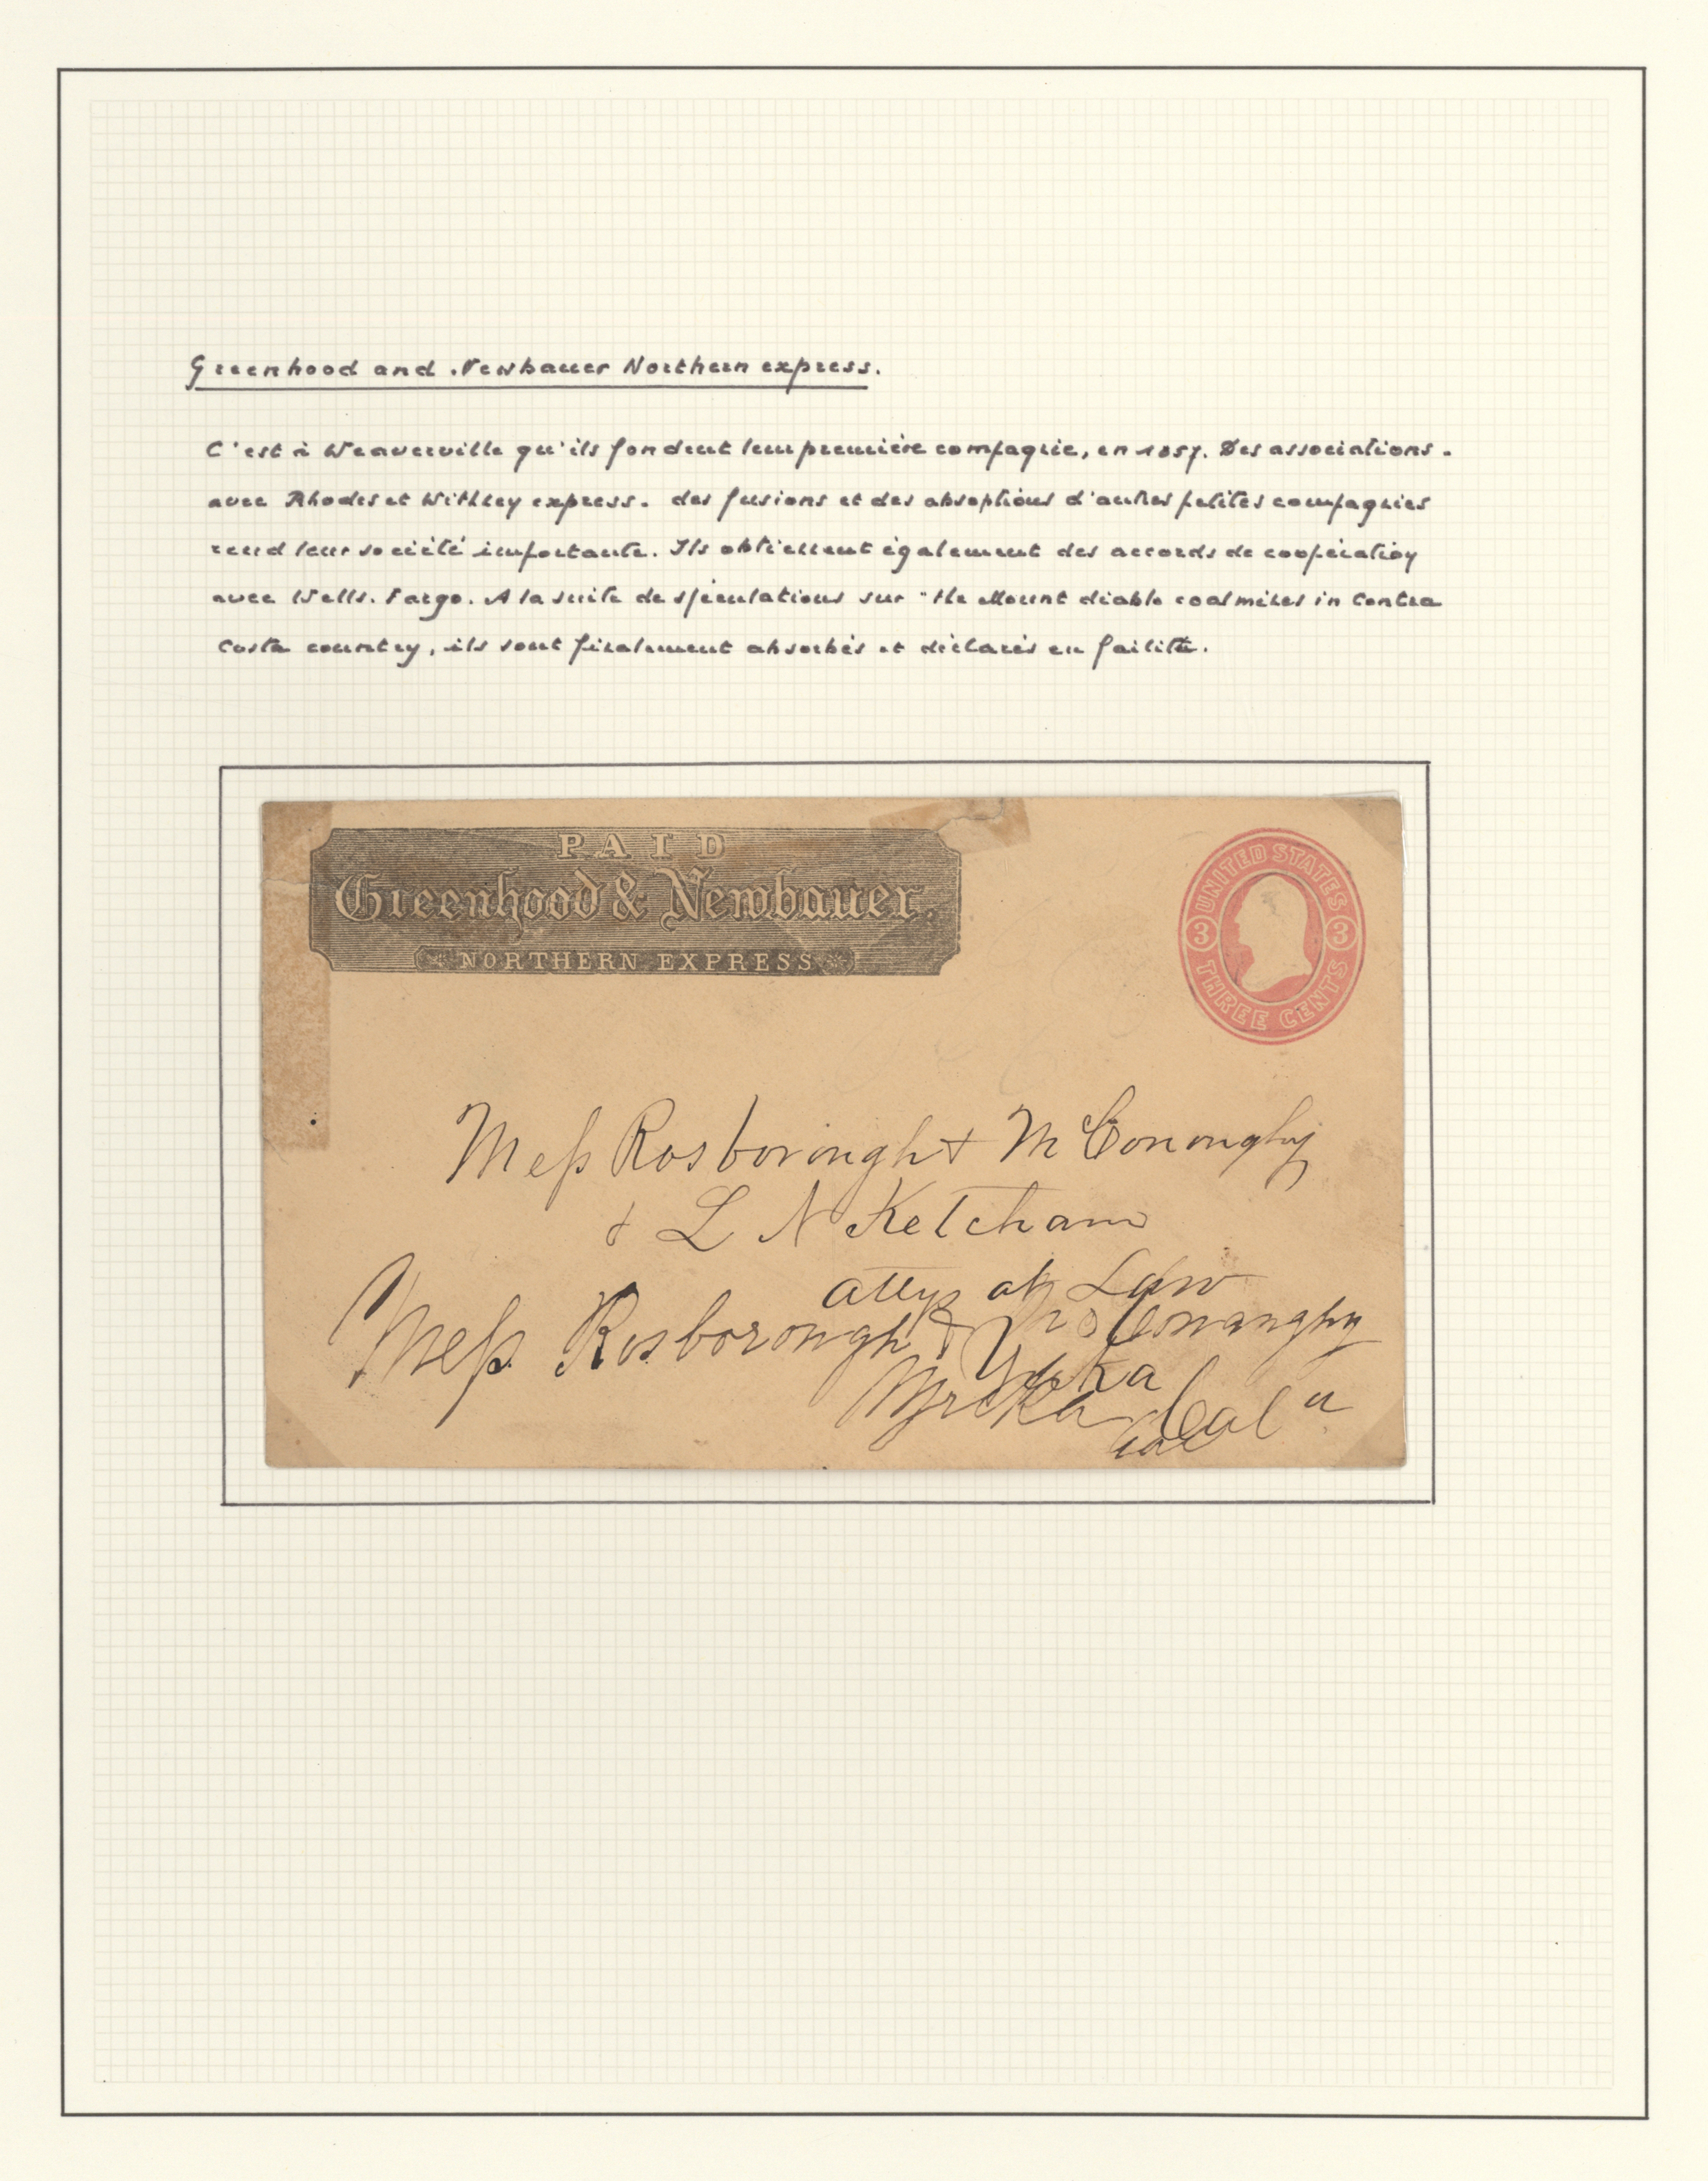 Greenhood and Newbauer Northern express.
C'est à Weaverville qu'ils fondent leur première compagnie, en 1857. Des associations.
avec Rhodes et Withley express. des fusions et des absoptions d'autres petites compagnies
rend leur société importante. Ils obtiennent également des accords de coopération
avec Wells. Fargo. A la suite de spéculations sur "the Mount diablo coalmines in Contra
Costa country, ils sont finalement absorbés et déclarés en faillite.
PAID
Greenhood & Newbauer.
NORTHERN EXPRESS
UNITED STATES
3 3
THREE CENTS
Mess Rosborough & McConoughy
& L N Ketcham
attys at Law
Mess. Rosborough & McConaughy
Yreka
Yreka Cala
Cal